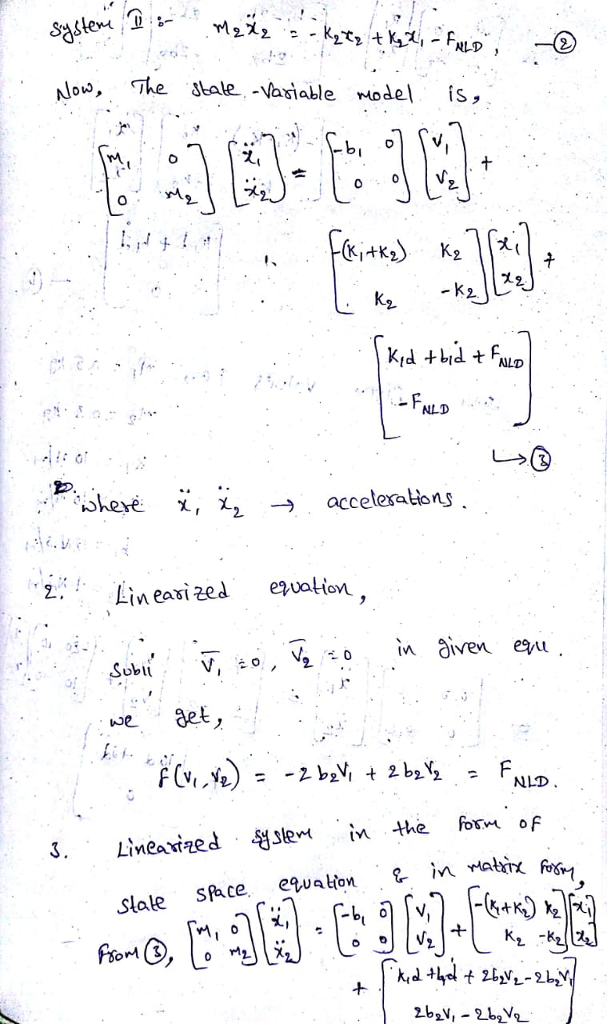 System II :- m₂ẍ₂ = -K₂x₂ + K₂x₁ - F_NLD, —②
Now, The state-variable model is,
[m₁ 0; 0 m₂] [ẍ₁; ẍ₂] = [-b₁ 0; 0 0] [V₁; V₂] +
[-(K₁+K₂) K₂; K₂ -K₂] [x₁; x₂] +
[K₁d + b₁ḋ + F_NLD; -F_NLD]
↳③
where ẍ₁ ẍ₂ → accelerations.
2. Linearized equation,
V̄₁ = 0, V̄₂ = 0 in given equ.
we get,
f(V₁, V₂) = -2b₂V₁ + 2b₂V₂ = F_NLD.
3. Linearized system in the form of
state space equation & in matrix form,
From ③, [m₁ 0; 0 m₂] [ẍ₁; ẍ₂] = [-b₁ 0; 0 0] [V₁; V₂] + [-(K₁+K₂) K₂; K₂ -K₂] [x₁; x₂]
+ [K₁d + b₁ḋ + 2b₂V₂ - 2b₂V₁; 2b₂V₁ - 2b₂V₂